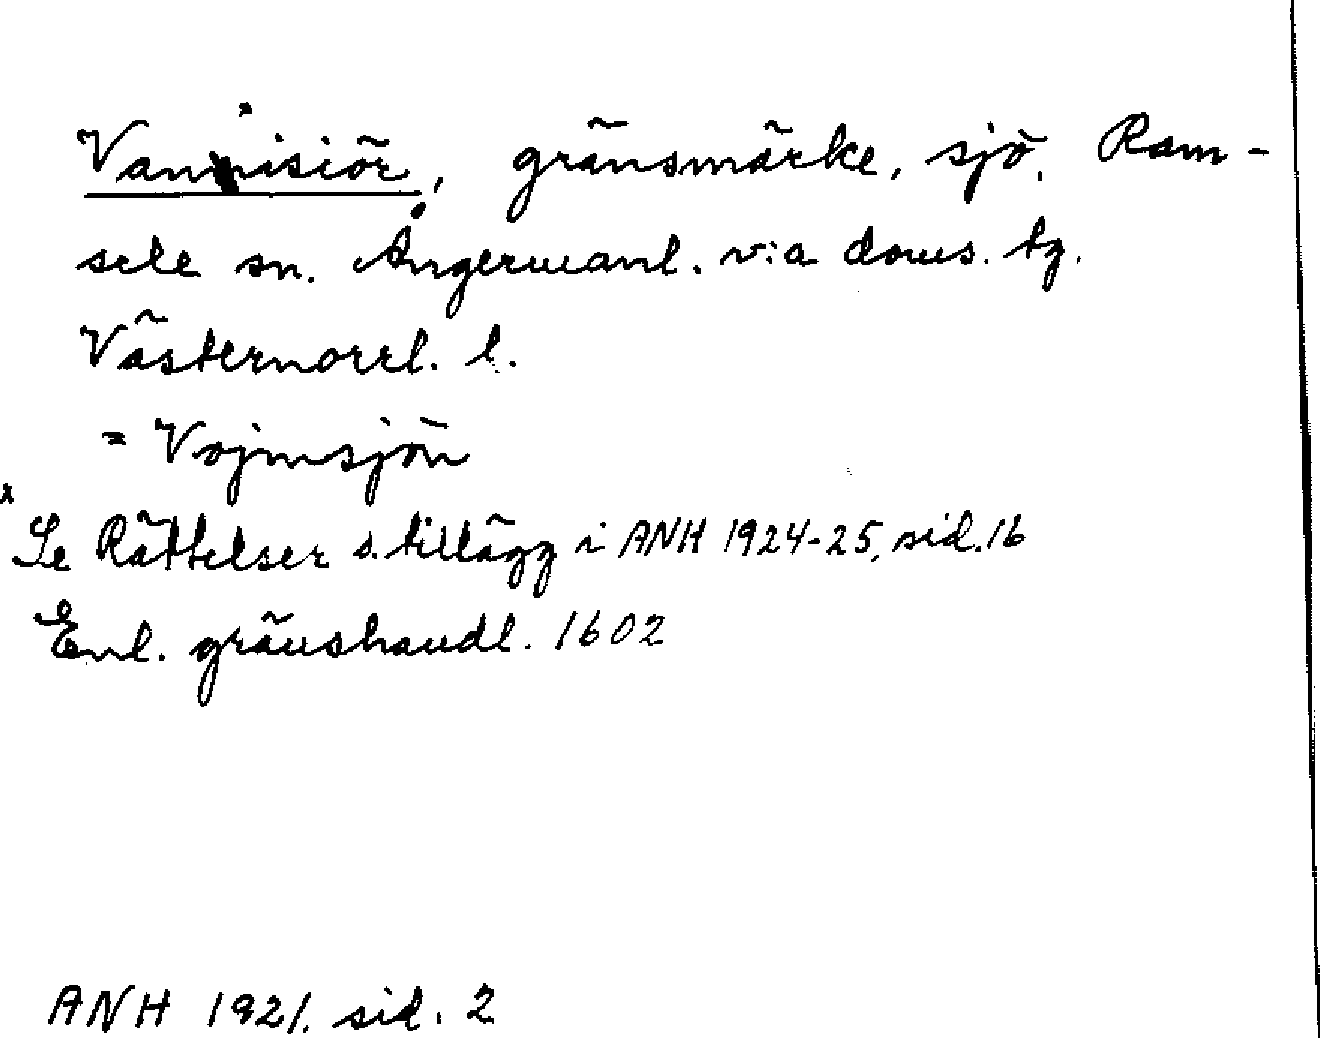 Vannisiör, gränsmärke, sjö, Ram-
sele sn. Ångermanl. v:a doms. tg.
Västernorrl. l.
= Vojmsjön
x Se Rättelser o. tillägg i ANH 1924-25, sid. 16
Enl. gränshandl. 1602
ANH 1921. sid. 2